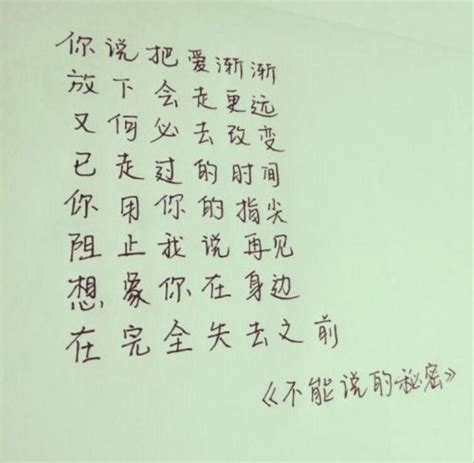 你说把爱渐渐
放下会走更远
又何必去改变
已走过的时间
你用你的指尖
阻止我说再见
想象你在身边
在完全失去之前
《不能说的秘密》